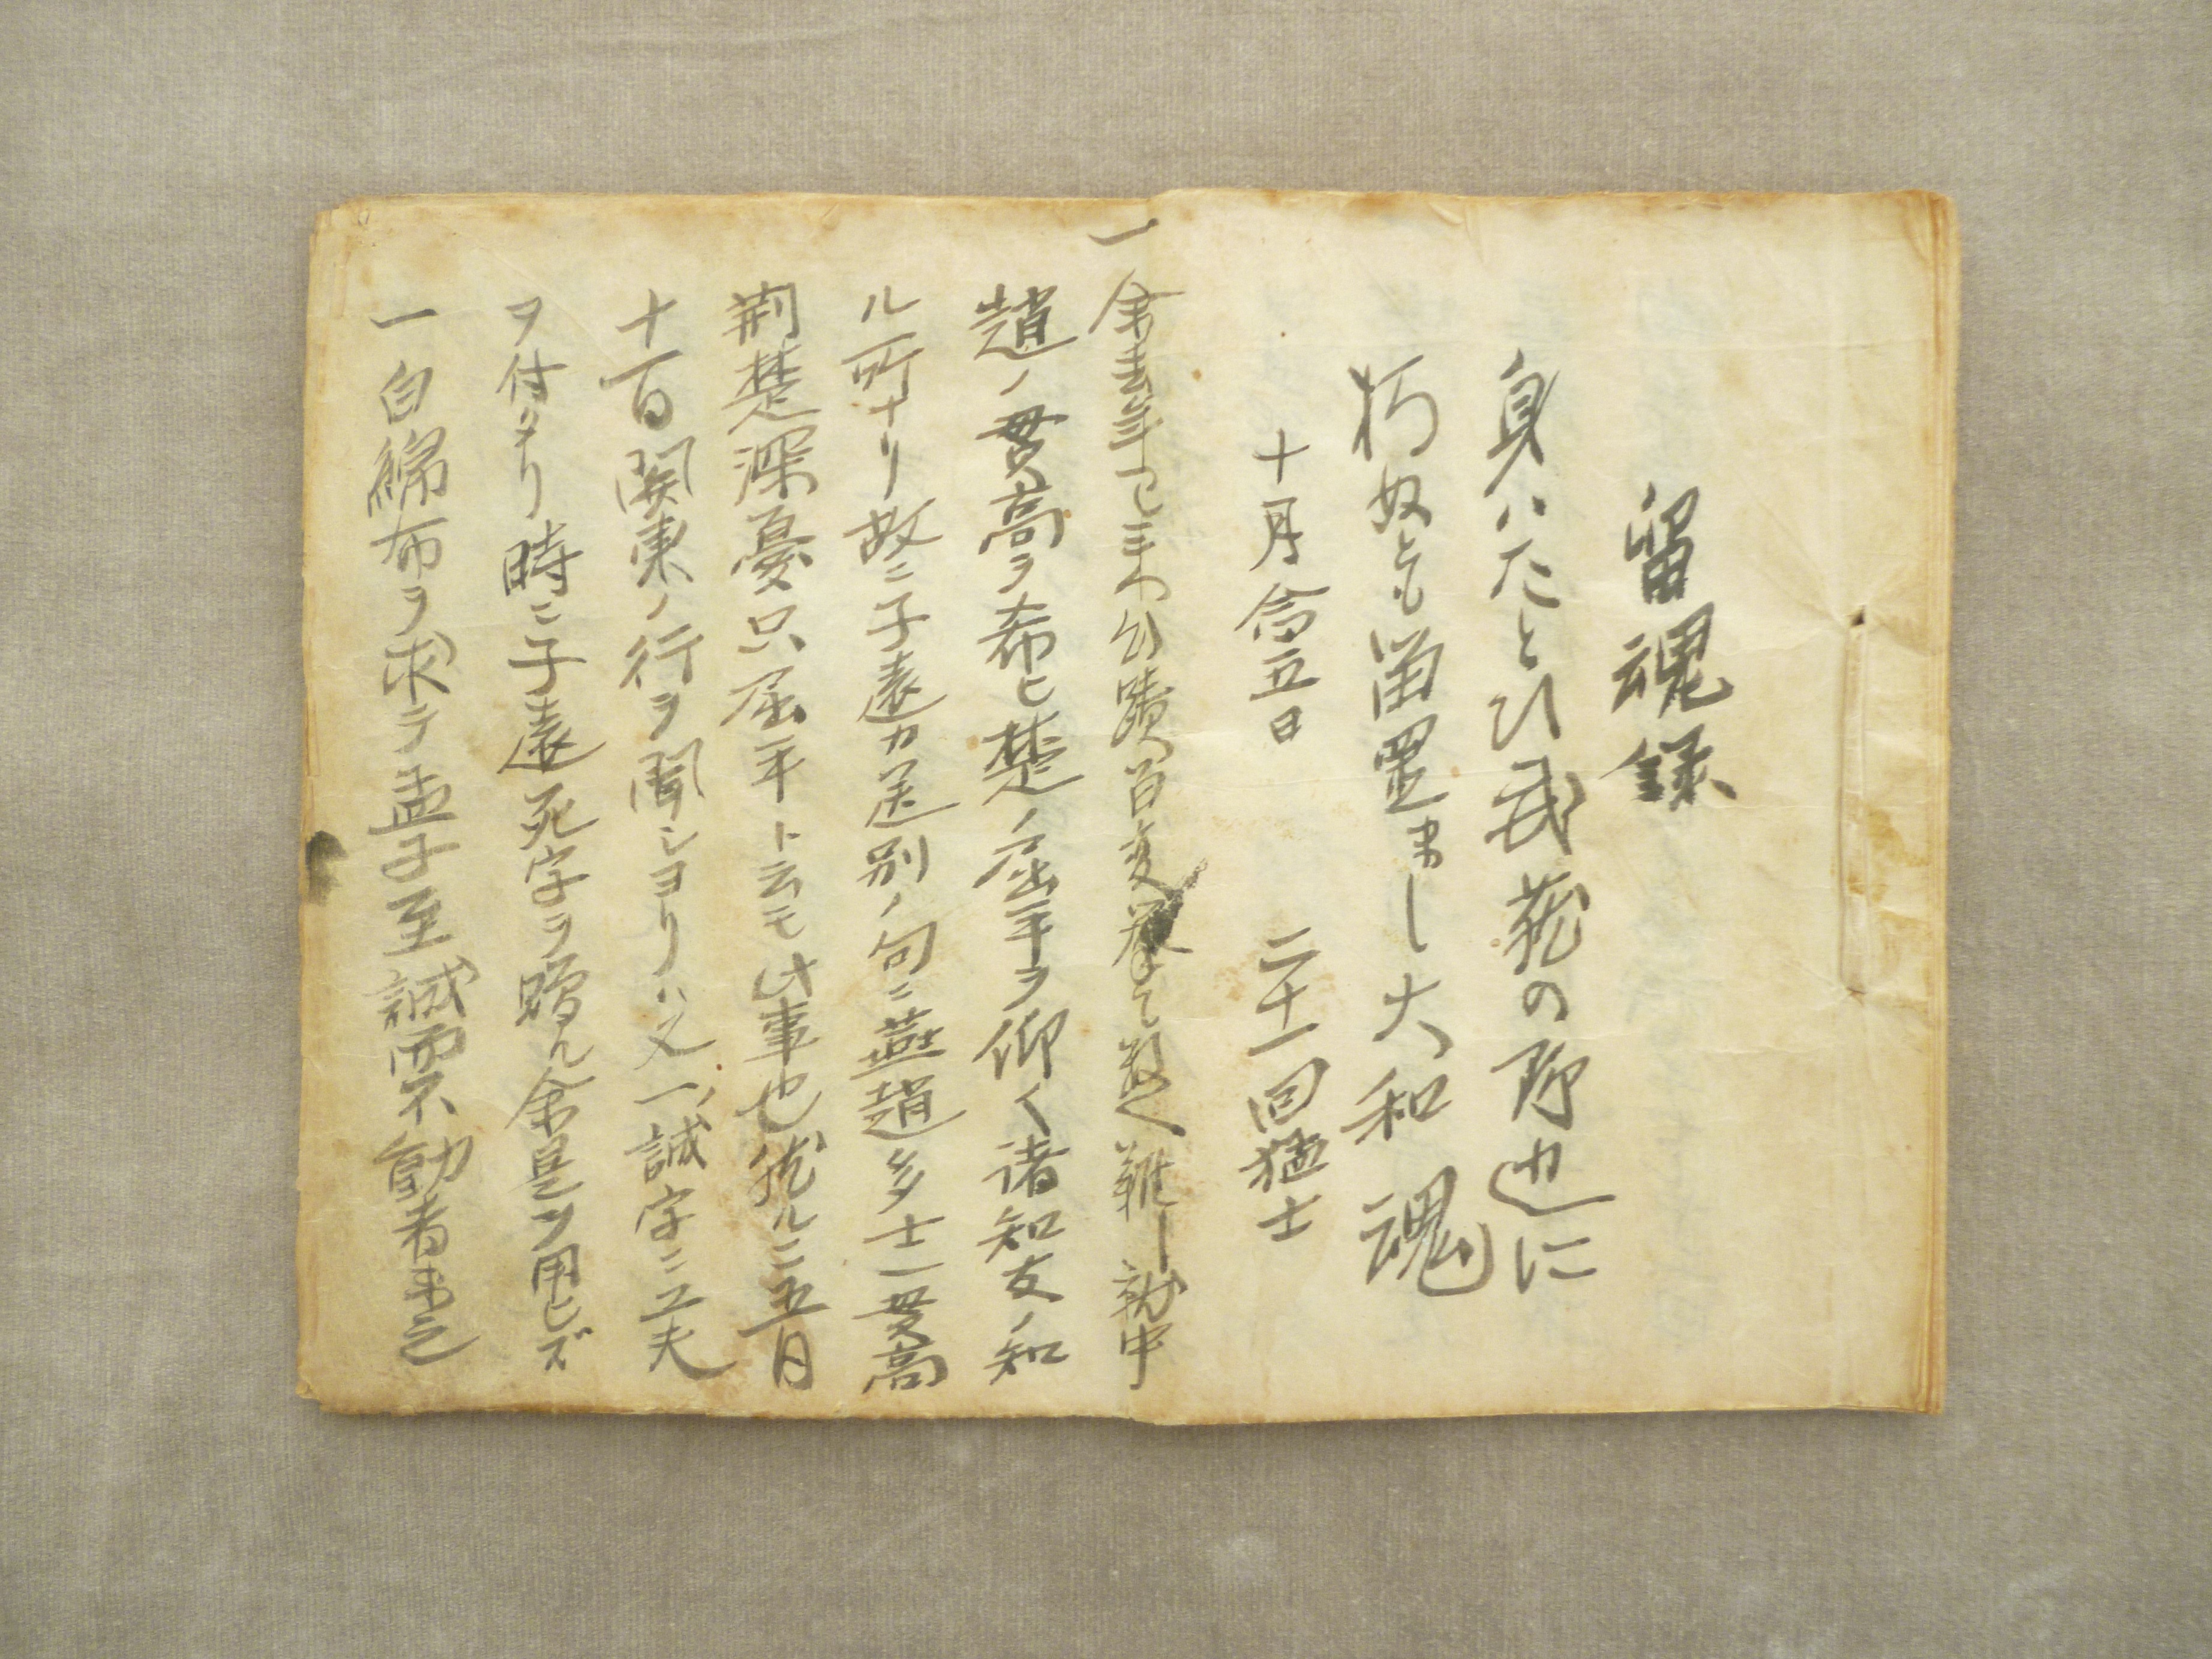 留魂録
身ハたとひ武蔵の野辺に
朽ぬとも留置まし大和魂
十月念五日 二十一回猛士
一 余去年已来心蹟百変挙て数へ難し就中
趙ノ貫高ヲ希ヒ楚ノ屈平ヲ仰ク諸知友ノ知
ル所ナリ故ニ子遠カ送別ノ句ニ燕趙多士一貫高
荆楚深憂只屈平ト云モ此事也然ルニ五月
十一日関東ノ行ヲ聞シヨリハ又一ノ誠字ニ工夫
ヲ付タリ時ニ子遠死字ヲ贈ル余是ヲ用ヒズ
一 白綿布ヲ求テ孟子至誠而不動者未之